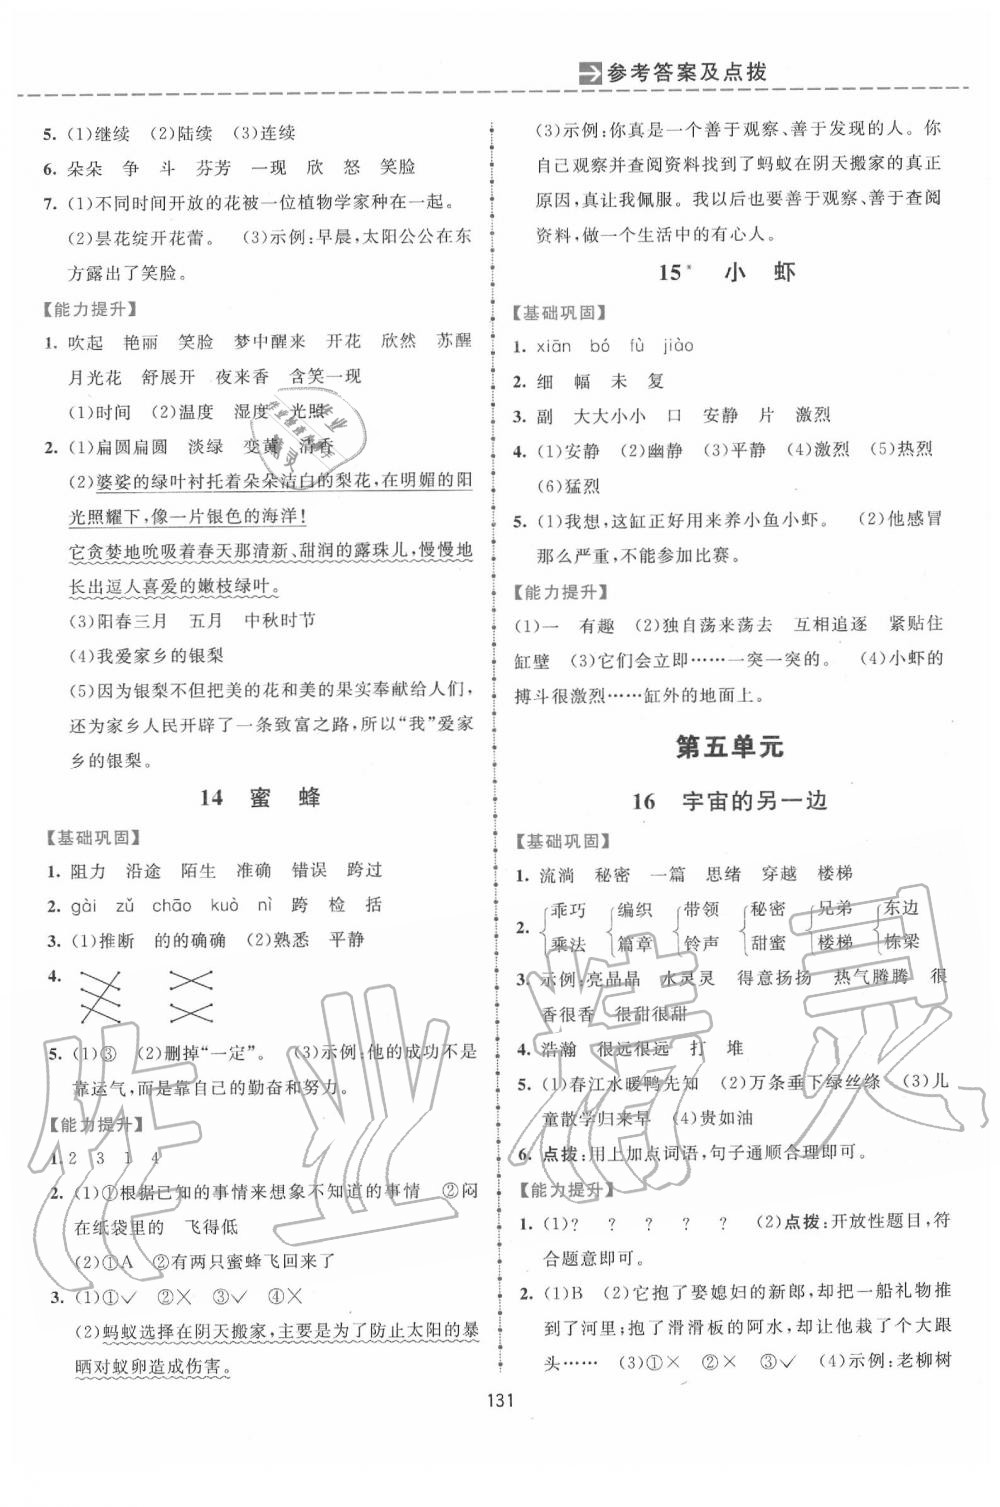 参考答案及点拨
5. (1)继续 (2)陆续 (3)连续
6. 朵朵 争 斗 芬芳 一现 欣 怒 笑脸
7. (1)不同时间开放的花被一位植物学家种在一起。
(2)昙花绽开花蕾。 (3)示例:早晨,太阳公公在东
方露出了笑脸。
【能力提升】
1. 吹起 艳丽 笑脸 梦中醒来 开花 欣然 苏醒
月光花 舒展开 夜来香 含笑一现
(1)时间 (2)温度 湿度 光照
2. (1)扁圆扁圆 淡绿 变黄 清香
(2)婆娑的绿叶衬托着朵朵洁白的梨花,在明媚的阳
光照耀下,像一片银色的海洋!
它贪婪地吮吸着春天那清新、甜润的露珠儿,慢慢地
长出逗人喜爱的嫩枝绿叶。
(3)阳春三月 五月 中秋时节
(4)我爱家乡的银梨
(5)因为银梨不但把美的花和美的果实奉献给人们,
还为家乡人民开辟了一条致富之路,所以“我”爱家
乡的银梨。
14 蜜 蜂
【基础巩固】
1. 阻力 沿途 陌生 准确 错误 跨过
2. gài zǔ chāo kuò nì 跨 检 括
3. (1)推断 的的确确 (2)熟悉 平静
4.
5. (1)③ (2)删掉“一定”。 (3)示例:他的成功不是
靠运气,而是靠自己的勤奋和努力。
【能力提升】
1. 2 3 1 4
2. (1)①根据已知的事情来想象不知道的事情 ②闷
在纸袋里的 飞得低
(2)①A ②有两只蜜蜂飞回来了
3. (1)①✓ ②× ③✓ ④×
(2)蚂蚁选择在阴天搬家,主要是为了防止太阳的暴
晒对蚁卵造成伤害。
(3)示例:你真是一个善于观察、善于发现的人。你
自己观察并查阅资料找到了蚂蚁在阴天搬家的真正
原因,真让我佩服。我以后也要善于观察、善于查阅
资料,做一个生活中的有心人。
15* 小 虾
【基础巩固】
1. xiān bó fù jiào
2. 细 幅 未 复
3. 副 大大小小 口 安静 片 激烈
4. (1)安静 (2)幽静 (3)平静 (4)激烈 (5)热烈
(6)猛烈
5. (1)我想,这缸正好用来养小鱼小虾。 (2)他感冒
那么严重,不能参加比赛。
【能力提升】
(1)一 有趣 (2)独自荡来荡去 互相追逐 紧贴住
缸壁 (3)它们会立即……一突一突的。 (4)小虾的
搏斗很激烈……缸外的地面上。
第五单元
16 宇宙的另一边
【基础巩固】
1. 流淌 秘密 一篇 思绪 穿越 楼梯
2. 乖巧 编织 带领 秘密 兄弟 东边
乘法 篇章 铃声 甜蜜 楼梯 栋梁
3. 示例:亮晶晶 水灵灵 得意扬扬 热气腾腾 很
香很香 很甜很甜
4. 浩瀚 很远很远 打 堆
5. (1)春江水暖鸭先知 (2)万条垂下绿丝绦 (3)儿
童散学归来早 (4)贵如油
6. 点拨:用上加点词语,句子通顺合理即可。
【能力提升】
1. (1)? ? ? ? ? (2)点拨:开放性题目,符
合题意即可。
2. (1)B (2)它抱了娶媳妇的新郎,却把一船礼物推
到了河里;抱了滑滑板的阿水,却让他摔了个大跟
头…… (3)①× ②× ③✓ (4)示例:老柳树
131
作业精灵